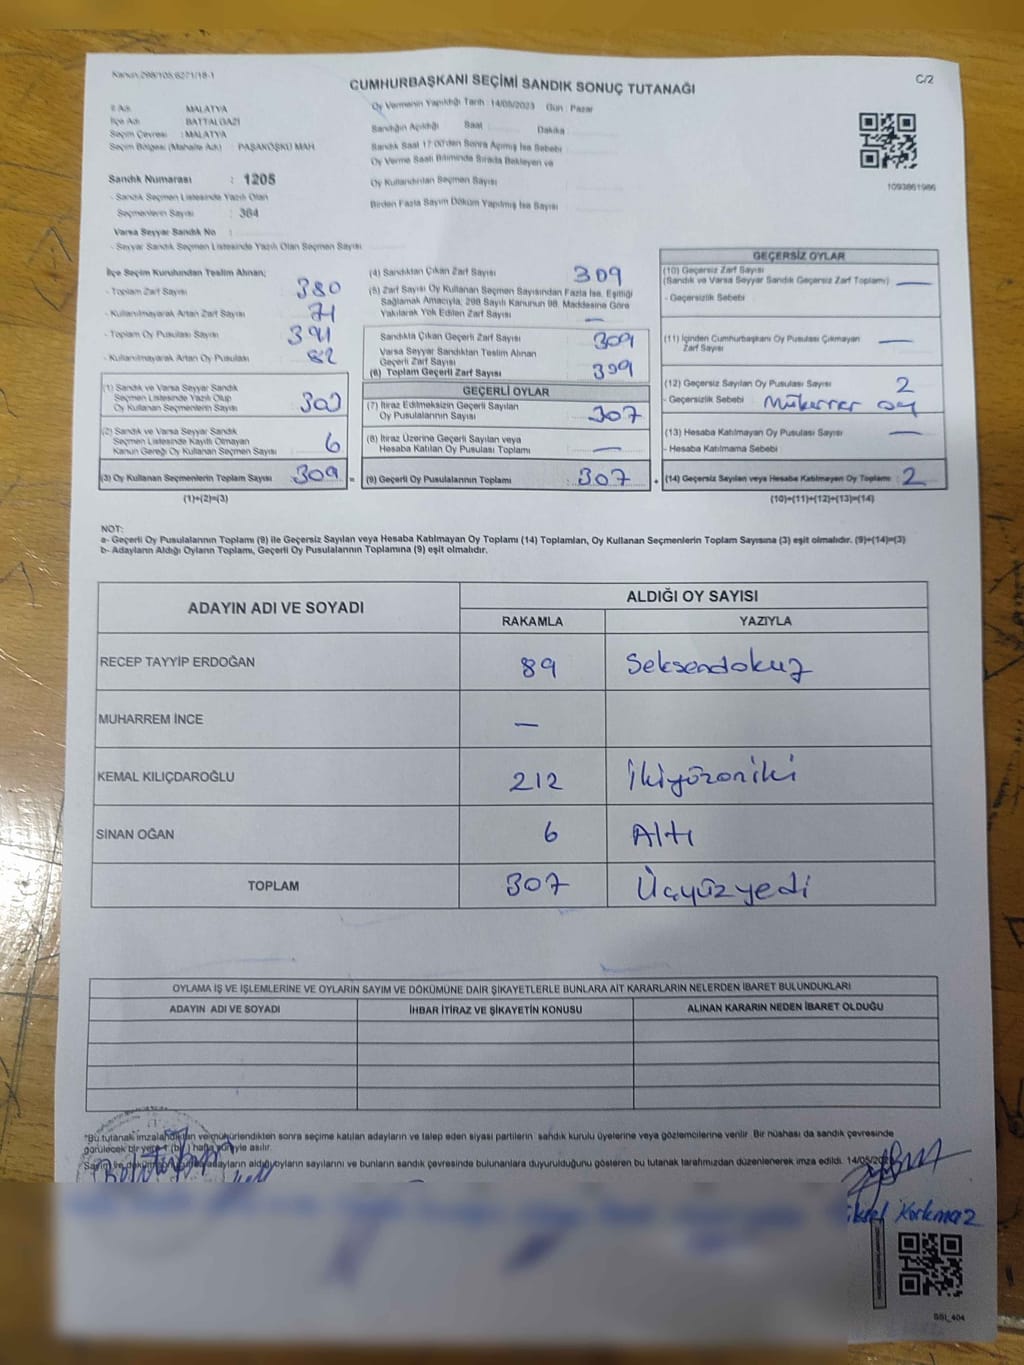 Kanun:298/105,6271/18-1
C/2
CUMHURBAŞKANI SEÇİMİ SANDIK SONUÇ TUTANAĞI
Oy Vermenin Yapıldığı Tarih : 14/05/2023 Gün : Pazar
İl Adı MALATYA
İlçe Adı BATTALGAZİ
Seçim Çevresi : MALATYA
Seçim Bölgesi (Mahalle Adı) : PAŞAKÖŞKÜ MAH.
Sandığın Açıldığı Saat Dakika
Sandık Saat 17:00'den Sonra Açılmış İse Sebebi
Oy Verme Saati Bitiminde Sırada Bekleyen ve
Oy Kullandırılan Seçmen Sayısı
Birden Fazla Sayım Döküm Yapılmış İse Sayısı
1093861986
Sandık Numarası : 1205
- Sandık Seçmen Listesinde Yazılı Olan
Seçmenlerin Sayısı : 364
Varsa Seyyar Sandık No :
- Seyyar Sandık Seçmen Listesinde Yazılı Olan Seçmen Sayısı
İlçe Seçim Kurulundan Teslim Alınan;
- Toplam Zarf Sayısı 380
- Kullanılmayarak Artan Zarf Sayısı 71
- Toplam Oy Pusulası Sayısı 391
- Kullanılmayarak Artan Oy Pusulası 82
(1) Sandık ve Varsa Seyyar Sandık
Seçmen Listesinde Yazılı Olup
Oy Kullanan Seçmenlerin Sayısı 303
(2) Sandık ve Varsa Seyyar Sandık
Seçmen Listesinde Kayıtlı Olmayan
Kanun Gereği Oy Kullanan Seçmen Sayısı 6
(3) Oy Kullanan Seçmenlerin Toplam Sayısı 309 =
(1)+(2)=(3)
(4) Sandıktan Çıkan Zarf Sayısı 309
(5) Zarf Sayısı Oy Kullanan Seçmen Sayısından Fazla İse, Eşitliği
Sağlamak Amacıyla; 298 Sayılı Kanunun 98. Maddesine Göre
Yakılarak Yok Edilen Zarf Sayısı —
Sandıkta Çıkan Geçerli Zarf Sayısı 309
Varsa Seyyar Sandıktan Teslim Alınan
Geçerli Zarf Sayısı
(6) Toplam Geçerli Zarf Sayısı 309
GEÇERLİ OYLAR
(7) İtiraz Edilmeksizin Geçerli Sayılan
Oy Pusulalarının Sayısı 307
(8) İtiraz Üzerine Geçerli Sayılan veya
Hesaba Katılan Oy Pusulası Toplamı —
(9) Geçerli Oy Pusulalarının Toplamı 307 +
GEÇERSİZ OYLAR
(10) Geçersiz Zarf Sayısı
(Sandık ve Varsa Seyyar Sandık Geçersiz Zarf Toplamı) —
- Geçersizlik Sebebi
(11) İçinden Cumhurbaşkanı Oy Pusulası Çıkmayan
Zarf Sayısı —
(12) Geçersiz Sayılan Oy Pusulası Sayısı 2
- Geçersizlik Sebebi Mükerrer oy
(13) Hesaba Katılmayan Oy Pusulası Sayısı —
- Hesaba Katılmama Sebebi
(14) Geçersiz Sayılan veya Hesaba Katılmayan Oy Toplamı : 2
(10)+(11)+(12)+(13)=(14)
NOT:
a- Geçerli Oy Pusulalarının Toplamı (9) ile Geçersiz Sayılan veya Hesaba Katılmayan Oy Toplamı (14) Toplamları, Oy Kullanan Seçmenlerin Toplam Sayısına (3) eşit olmalıdır. (9)+(14)=(3)
b- Adayların Aldığı Oyların Toplamı, Geçerli Oy Pusulalarının Toplamına (9) eşit olmalıdır.
ADAYIN ADI VE SOYADI
ALDIĞI OY SAYISI
RAKAMLA YAZIYLA
RECEP TAYYİP ERDOĞAN 89 Seksendokuz
MUHARREM İNCE —
KEMAL KILIÇDAROĞLU 212 İkiyüzoniki
SİNAN OĞAN 6 Altı
TOPLAM 307 Üçyüzyedi
OYLAMA İŞ VE İŞLEMLERİNE VE OYLARIN SAYIM VE DÖKÜMÜNE DAİR ŞİKAYETLERLE BUNLARA AİT KARARLARIN NELERDEN İBARET BULUNDUKLARI
ADAYIN ADI VE SOYADI İHBAR İTİRAZ VE ŞİKAYETİN KONUSU ALINAN KARARIN NEDEN İBARET OLDUĞU
*Bu tutanak imzalandıktan ve mühürlendikten sonra seçime katılan adayların ve talep eden siyasi partilerin sandık kurulu üyelerine veya gözlemcilerine verilir. Bir nüshası da sandık çevresinde
görülecek bir yere 1 (bir) hafta süreyle asılır.
Sayım ve döküm adayların aldığı oyların sayılarını ve bunların sandık çevresinde bulunanlara duyurulduğunu gösteren bu tutanak tarafımızdan düzenlenerek imza edildi. 14/05/202
Korkmaz
SSI_404